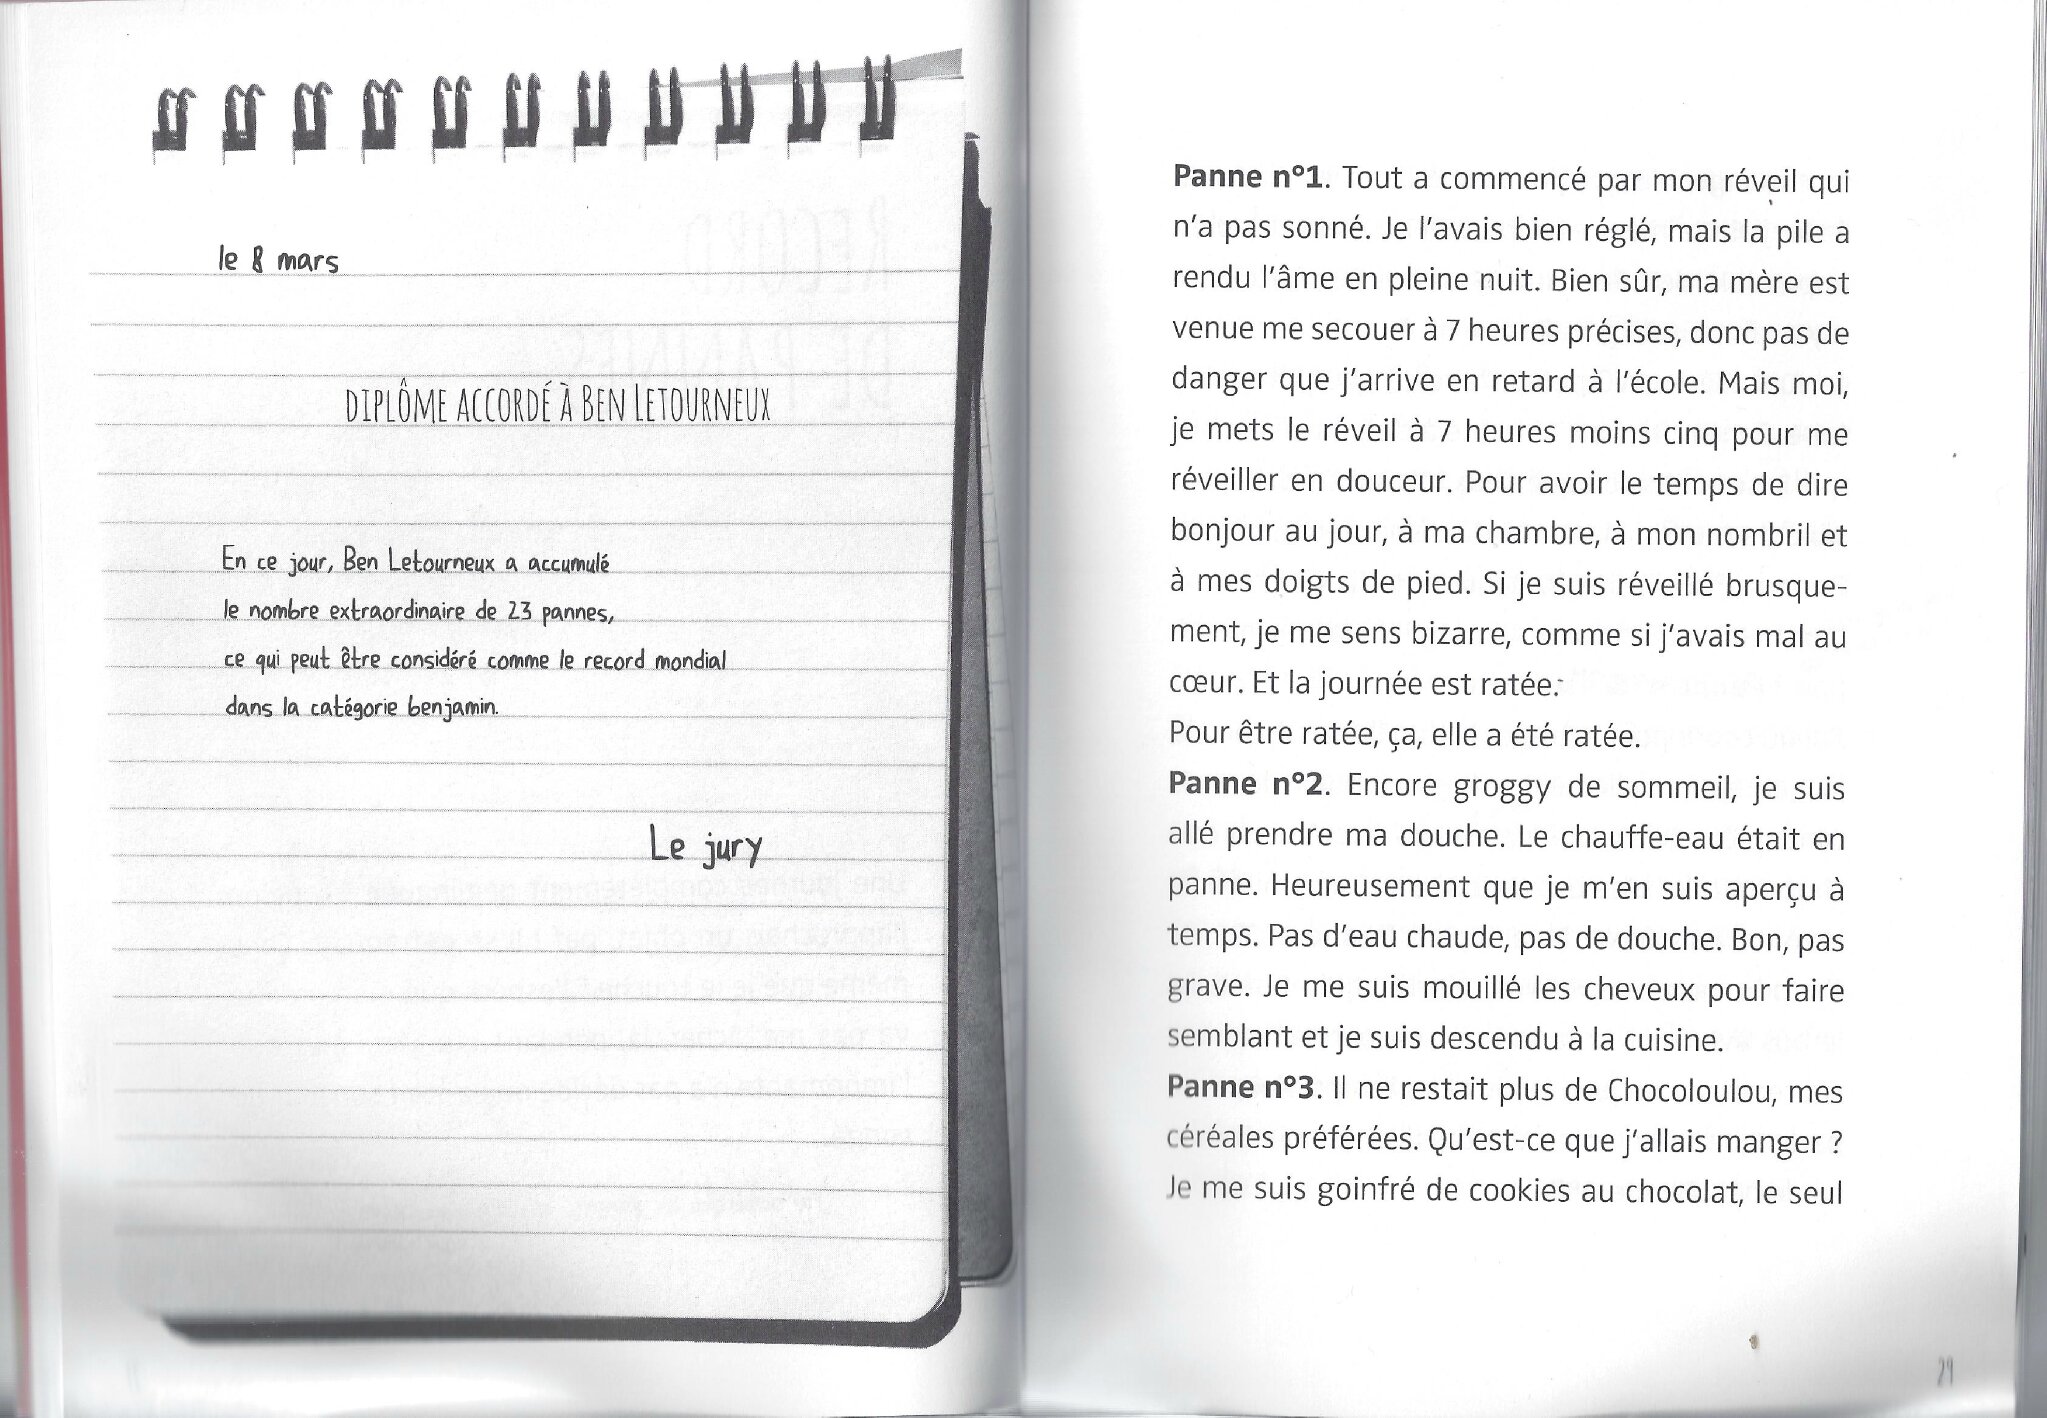 le 8 mars
DIPLÔME ACCORDÉ À BEN LETOURNEUX
En ce jour, Ben Letourneux a accumulé
le nombre extraordinaire de 23 pannes,
ce qui peut être considéré comme le record mondial
dans la catégorie benjamin.
Le jury
Panne n°1. Tout a commencé par mon réveil qui
n'a pas sonné. Je l'avais bien réglé, mais la pile a
rendu l'âme en pleine nuit. Bien sûr, ma mère est
venue me secouer à 7 heures précises, donc pas de
danger que j'arrive en retard à l'école. Mais moi,
je mets le réveil à 7 heures moins cinq pour me
réveiller en douceur. Pour avoir le temps de dire
bonjour au jour, à ma chambre, à mon nombril et
à mes doigts de pied. Si je suis réveillé brusque-
ment, je me sens bizarre, comme si j'avais mal au
cœur. Et la journée est ratée.
Pour être ratée, ça, elle a été ratée.
Panne n°2. Encore groggy de sommeil, je suis
allé prendre ma douche. Le chauffe-eau était en
panne. Heureusement que je m'en suis aperçu à
temps. Pas d'eau chaude, pas de douche. Bon, pas
grave. Je me suis mouillé les cheveux pour faire
semblant et je suis descendu à la cuisine.
Panne n°3. Il ne restait plus de Chocoloulou, mes
céréales préférées. Qu'est-ce que j'allais manger ?
Je me suis goinfré de cookies au chocolat, le seul
29